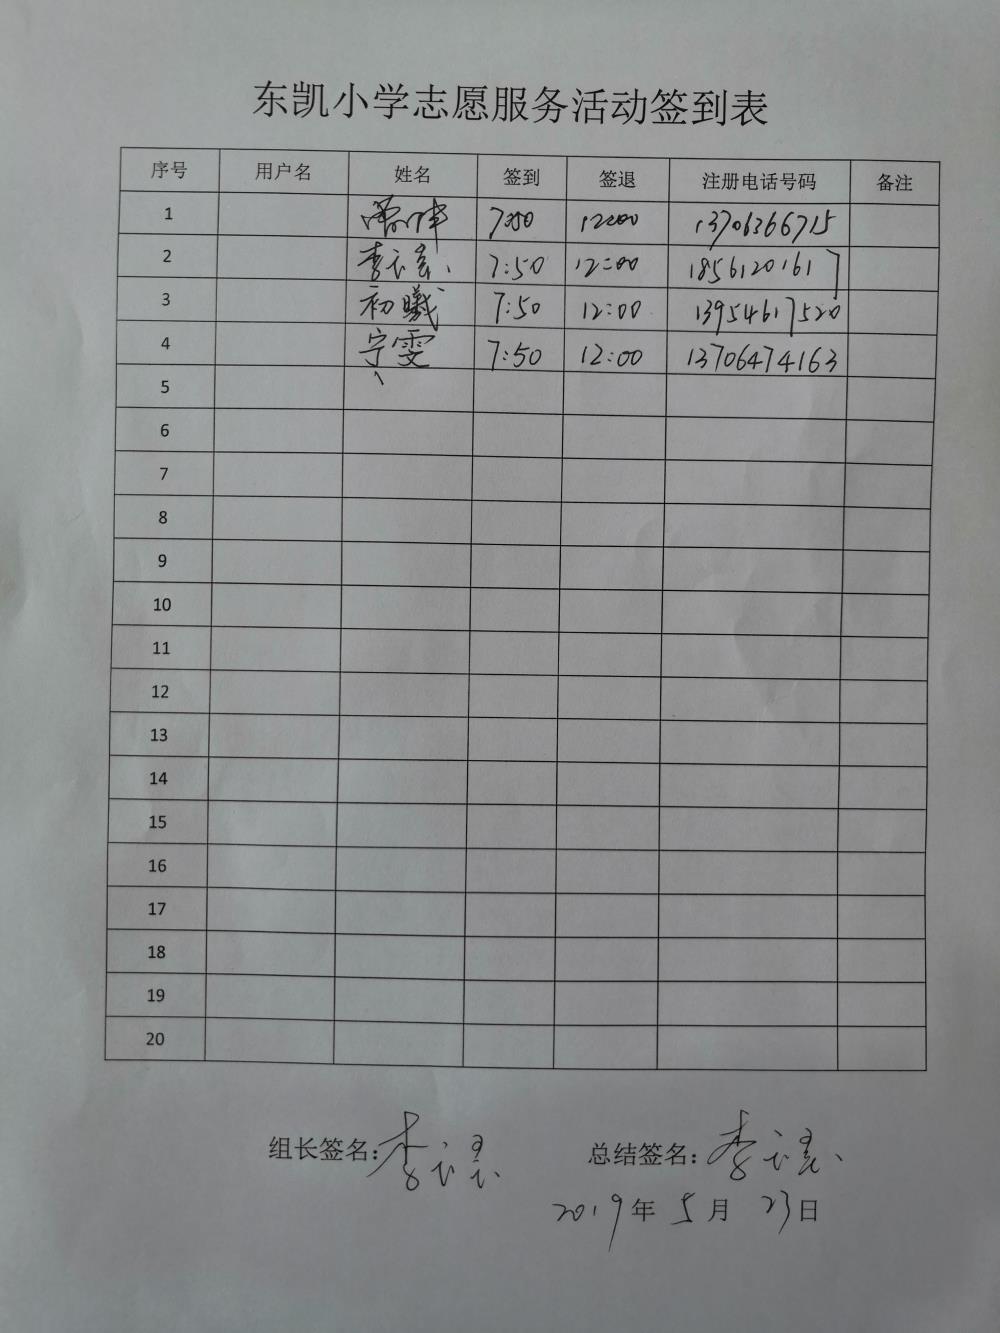 东凯小学志愿服务活动签到表
序号 用户名 姓名 签到 签退 注册电话号码 备注
1 7:50 12:00 13706366715
2 李 7:50 12:00 18561201617
3 初曦 7:50 12:00 13954617520
4 宁雯 7:50 12:00 13706474163
5
6
7
8
9
10
11
12
13
14
15
16
17
18
19
20
组长签名: 李 总结签名: 李
2019年 5月 23日